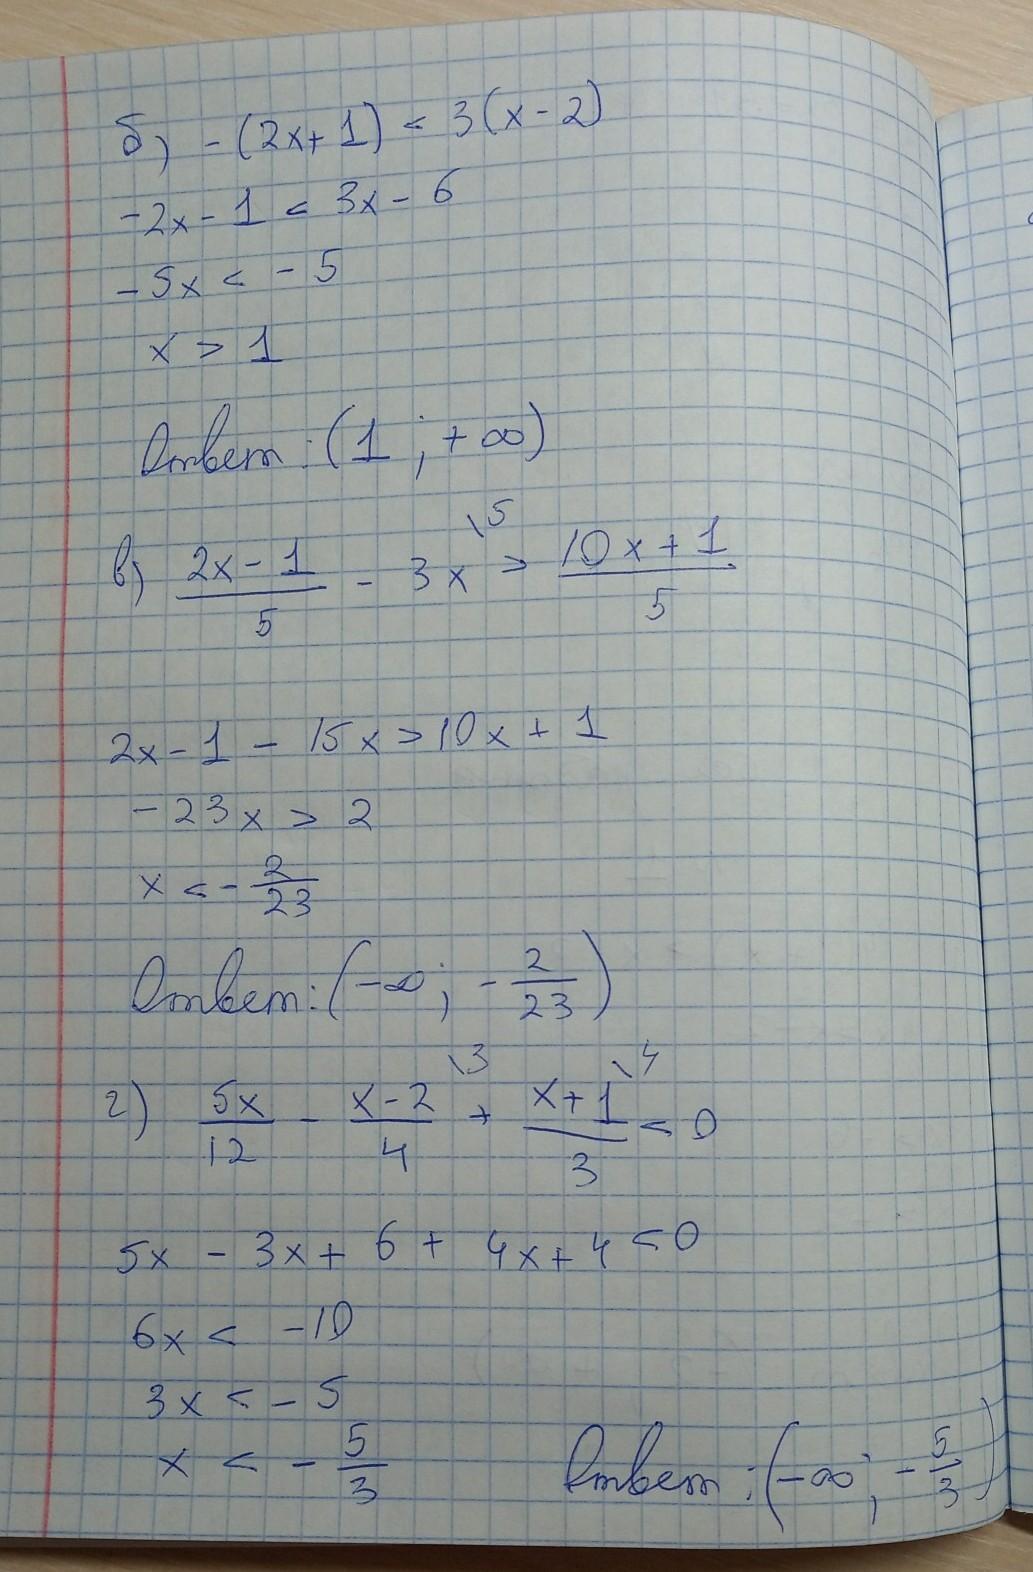 б) -(2x+1) < 3(x-2)
-2x-1 < 3x-6
-5x < -5
x > 1
Ответ: (1; +∞)
в) \frac{2x-1}{5} - 3x^{\5} > \frac{10x+1}{5}
2x-1 - 15x > 10x+1
-23x > 2
x < -\frac{2}{23}
Ответ: (-∞; -\frac{2}{23})
г) \frac{5x}{12} - \frac{x-2}{4}^{\3} + \frac{x+1}{3}^{\4} < 0
5x - 3x + 6 + 4x + 4 < 0
6x < -10
3x < -5
x < -\frac{5}{3}
Ответ: (-∞; -\frac{5}{3})